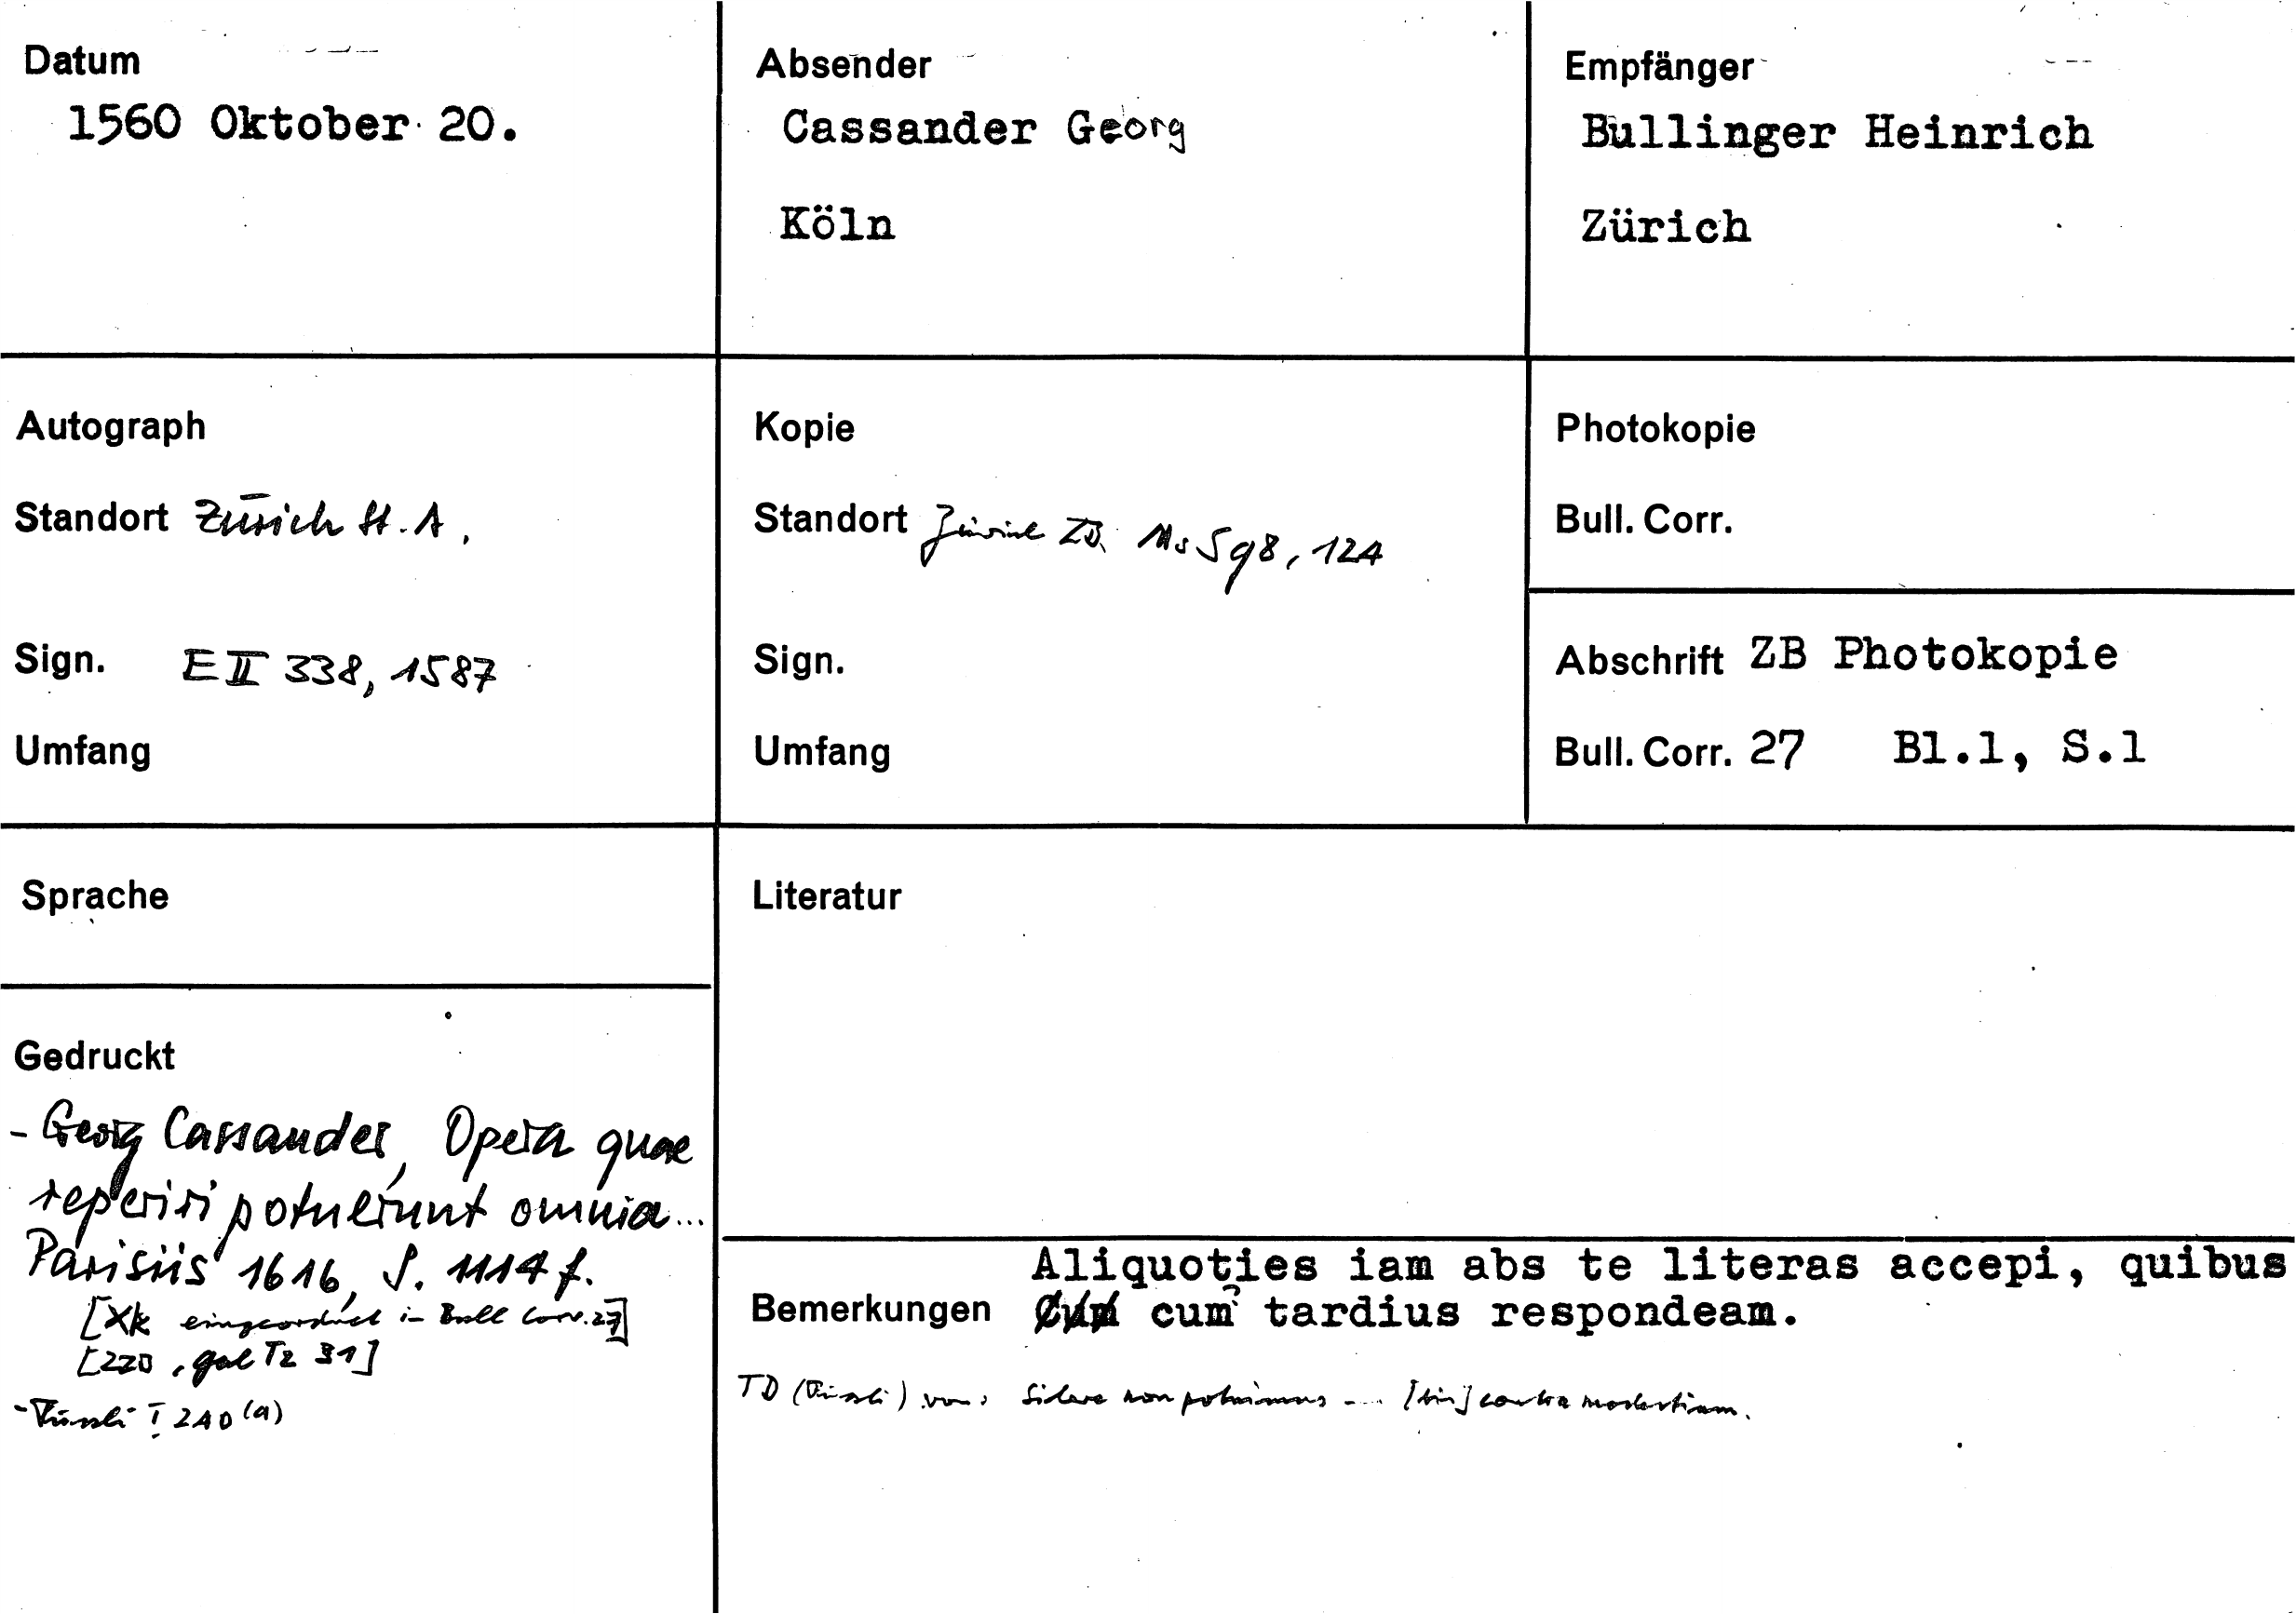 Datum
1560 Oktober 20.
Absender
Cassander Georg
Köln
Empfänger
Bullinger Heinrich
Zürich
Autograph
Standort Zürich St. A.
Sign. E II 338, 1587
Umfang
Kopie
Standort Zürich ZB. Ms S 98, 124
Sign.
Umfang
Photokopie
Bull. Corr.
Abschrift ZB Photokopie
Bull. Corr. 27 Bl.1, S.1
Sprache
Gedruckt
- Georg Cassander, Opera quae
reperiri potuerunt omnia...
Parisiis 1616, S. 1114 f.
[Xk eingeordnet in Bull Corr. 27]
[ZZB, Gal Tz 31]
- Füssli I 240 (a)
Literatur
Bemerkungen
Aliquoties iam abs te literas accepi, quibus
cum? tardius respondeam.
TD (Füssli) von: non potuimus ... [bis] contra modestiam.